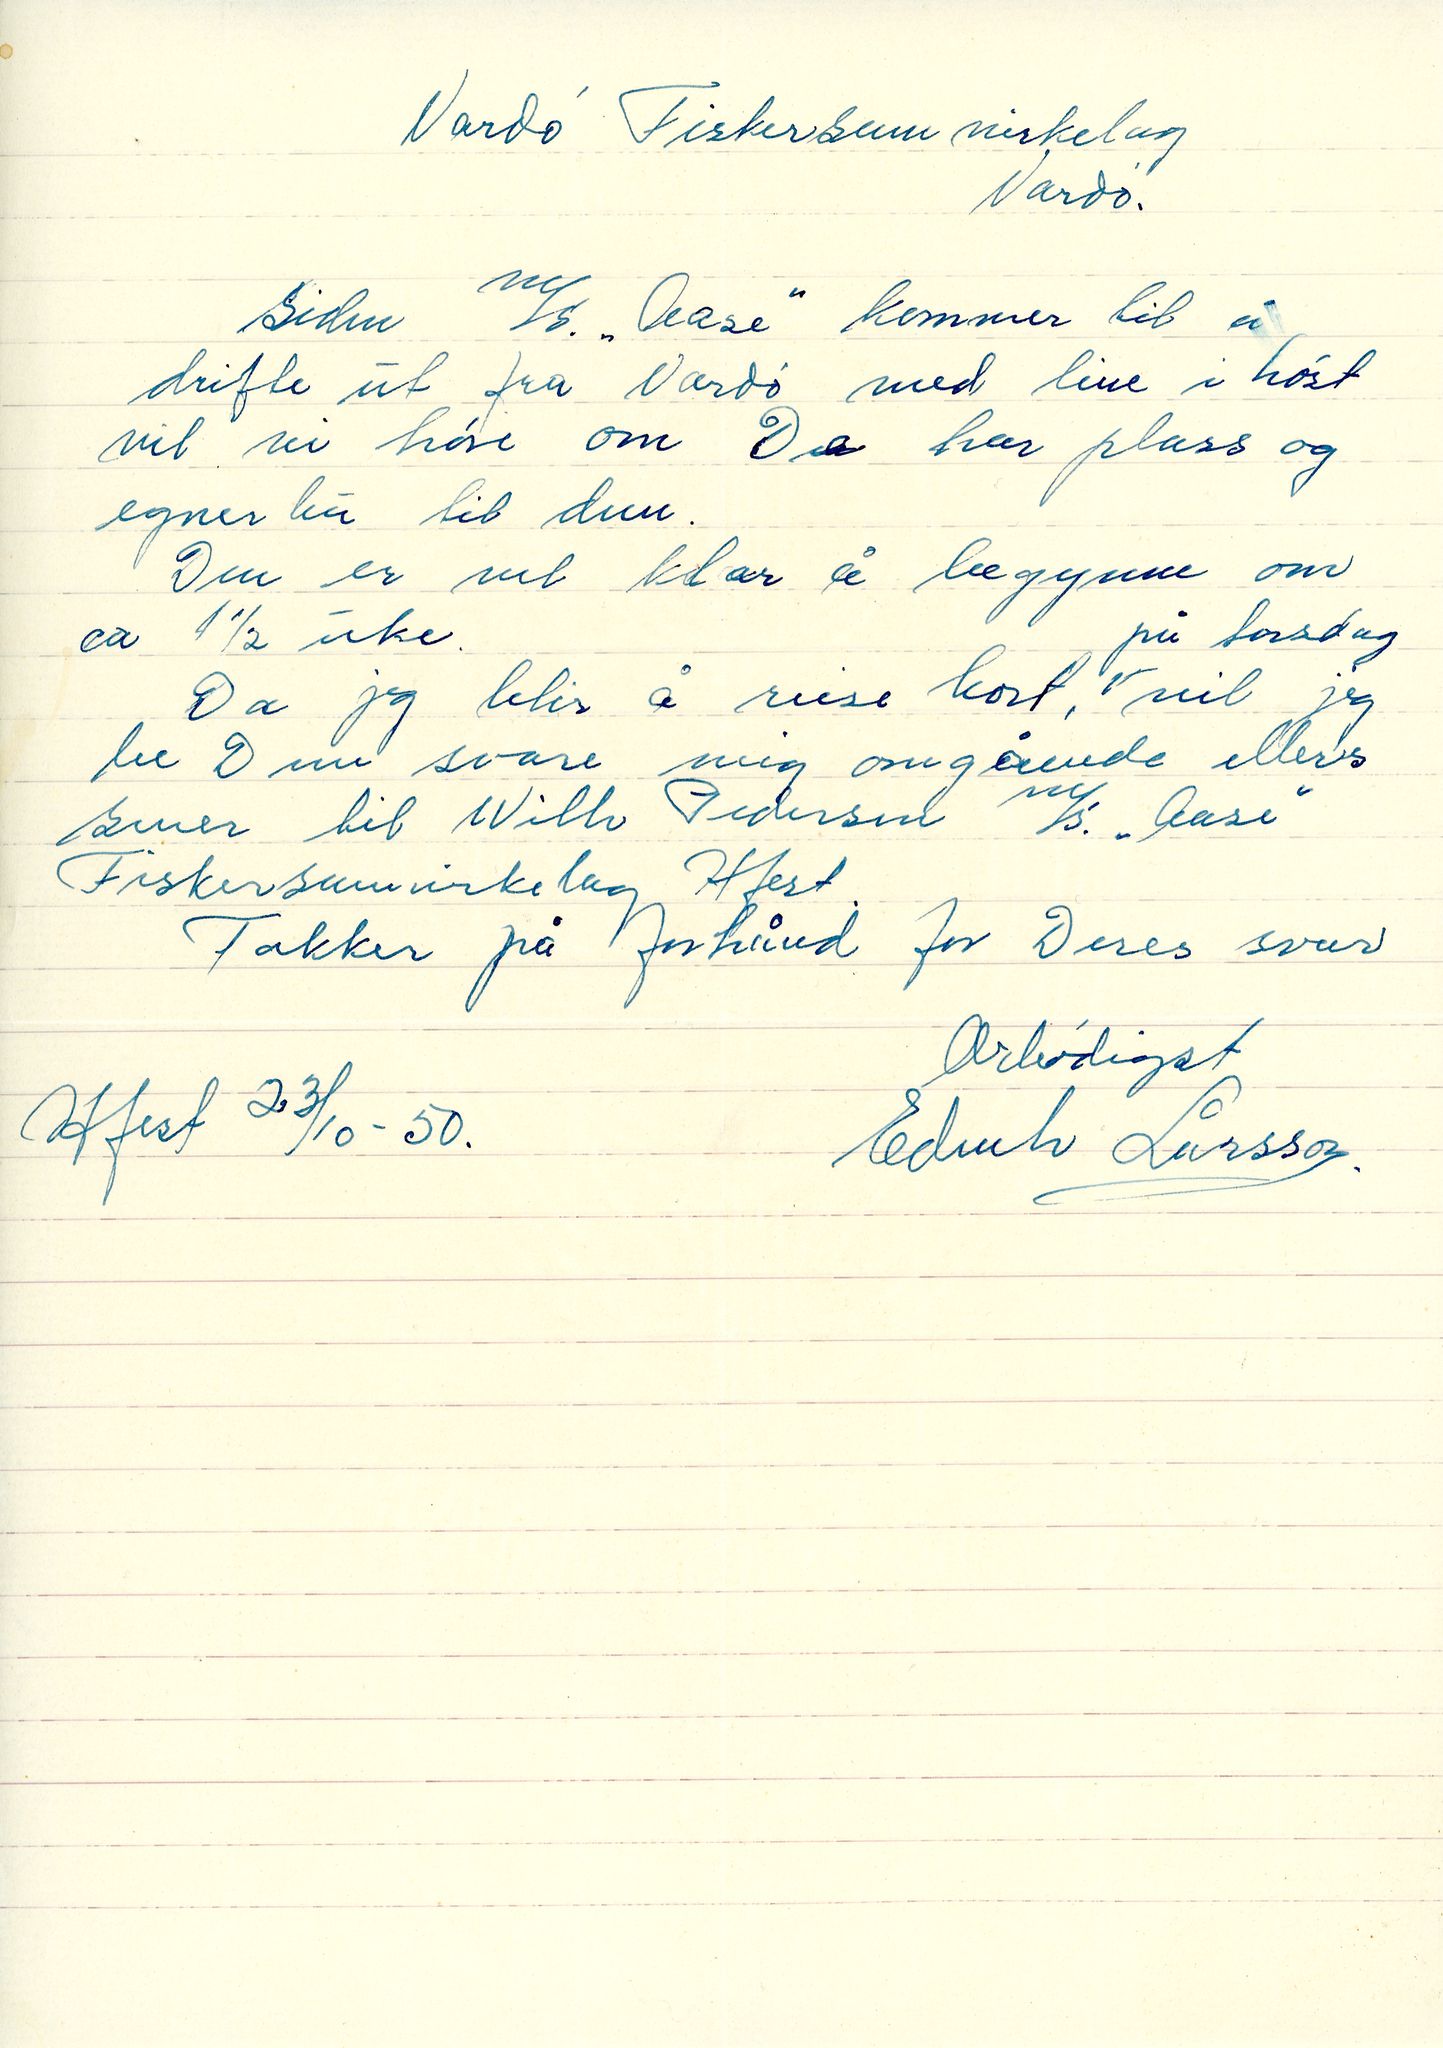 Vardø Fiskersamvirkelag
Vardø.
Siden M/S. „Aase" kommer til å
drifte ut fra Vardø med line i høst
vil vi høre om De har plass og
egnerbu til den.
Den er vel klar å begynne om
ca 1 1/2 uke.
på torsdag
Da jeg blir å reise bort, vil jeg
be Dem svare mig omgående ellers
sener til Wilh Pedersen M/S. „Aase"
Fiskersamvirkelag Hfest.
Takker på forhånd for Deres svar
Ærbødigst
Hfest 23/10-50.
Larsson.